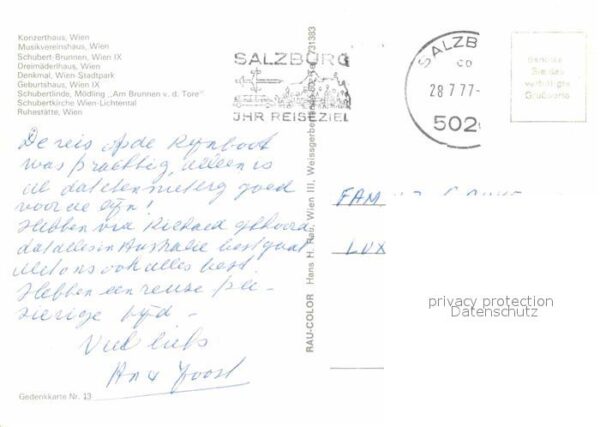 Konzerthaus, Wien
Musikvereinshaus, Wien
Schubert-Brunnen, Wien IX
Dreimäderlhaus, Wien
Denkmal, Wien-Stadtpark
Geburtshaus, Wien IX
Schuberlinde, Mödling „Am Brunnen v. d. Tore"
Schubertkirche Wien-Lichtental
Ruhestätte, Wien
De reis op de Rijnboot
was prachtig, alleen is
de
goed
voor de lijn!
Hebben via Richard gehoord
dat alles in Australie best gaat
Met ons ook alles best.
Hebben een reuze ple-
zierige tijd -
Veel liefs
An x Joost
Gedenkkarte Nr. 13
RAU-COLOR Hans H. Rau, Wien III, Weissgerber 731383
SALZBURG
IHR REISEZIEL
SALZB
28 7 77-
502
FAM
LUX
privacy protection
Datenschutz